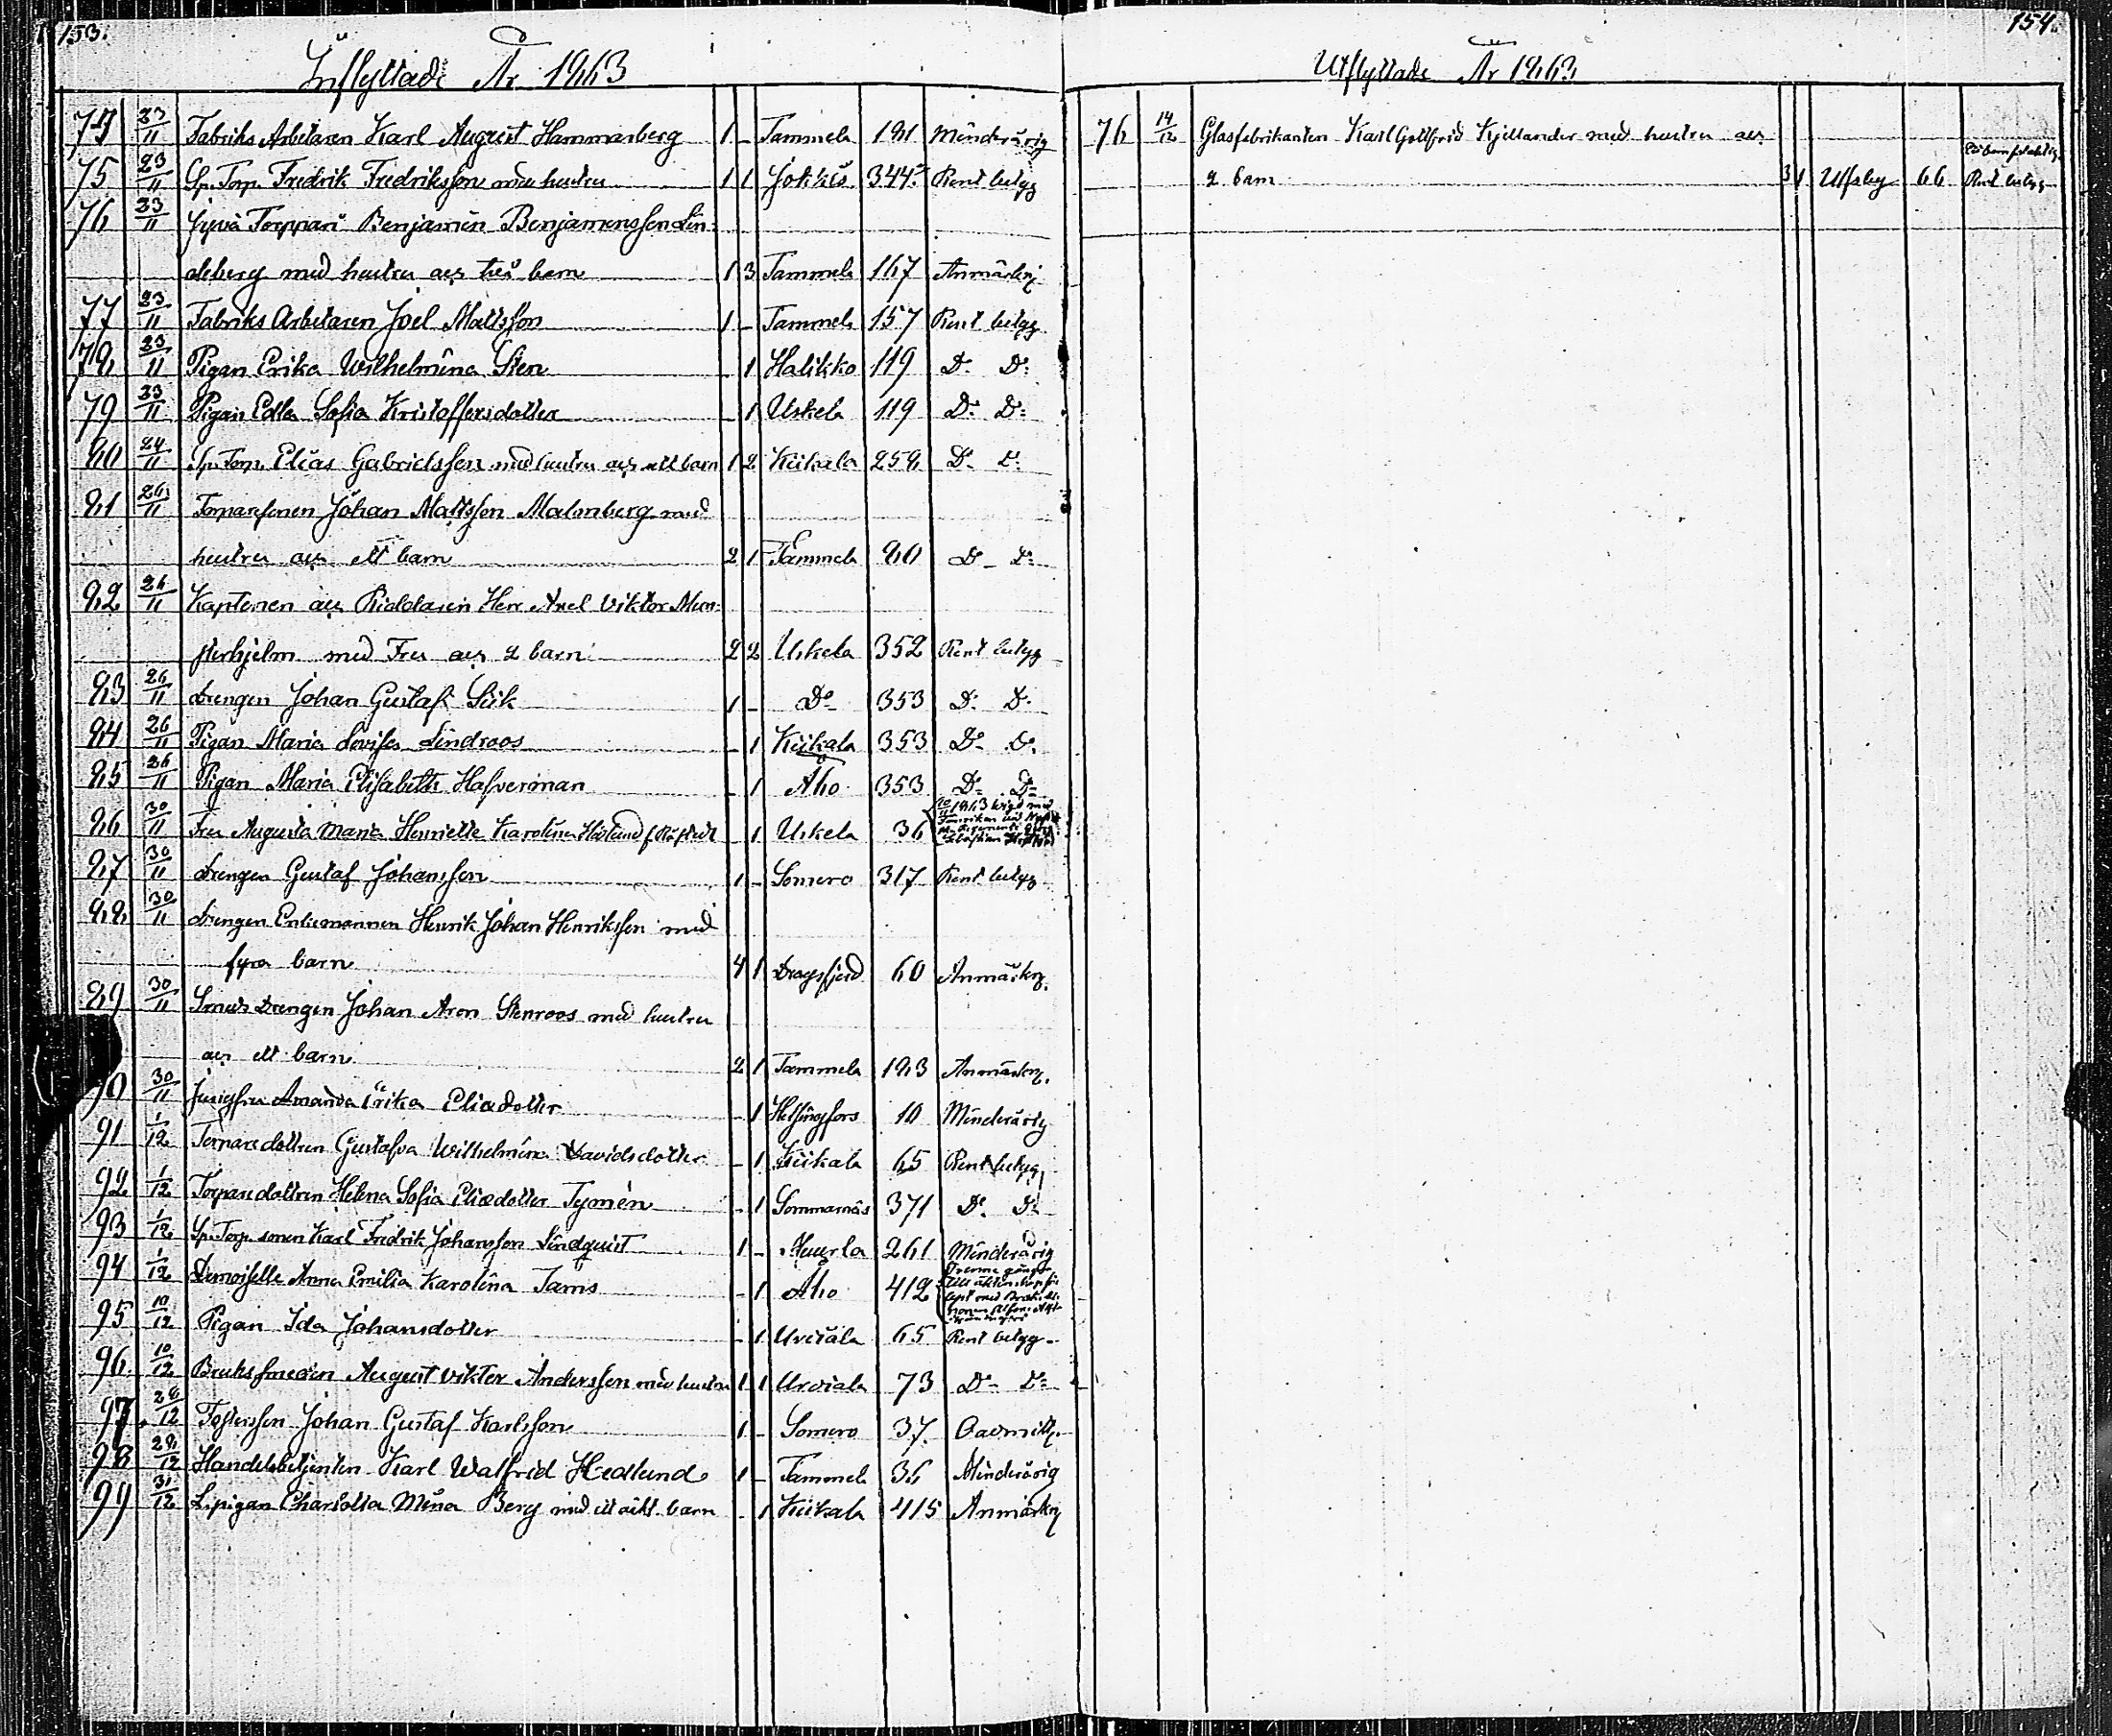 153.
Inflyttade År 1863
74 23/11 Fabriks Arbetaren Karl August Hammarberg 1 - Tammela 181 Minderårig
75 23/11 Sp. Torp. Fredrik Fredriksson med hustru 1 1 Jokkis 344 Rent betyg
76 23/11 Torppari Benjamin Benjaminsson Lin-
deberg med hustru och tre barn 1 3 Tammela 167 Anmärkn.
77 23/11 Fabriks Arbetaren Joel Mattsson 1 - Tammela 157 Rent betyg
78 23/11 Pigan Erika Wilhelmina Sten - 1 Halikko 119 D:o D:o
79 23/11 Pigan Edla Sofia Kristoffersdotter - 1 Uskela 119 D:o D:o
80 24/11 Sp. Torp. Elias Gabrielsson med hustru och ett barn 1 2 Kiikala 258 D:o D:o
81 26/11 Torparesonen Johan Mattsson Malmberg med
hustru och ett barn 2 1 Tammela 80 D:o D:o
82 26/11 Kaptenen och Riddaren Herr Axel Viktor Mun-
sterhjelm med Fru och 2 barn 2 2 Uskela 352 Rent betyg
83 26/11 Drengen Johan Gustaf Siik 1 - D:o 353 D:o D:o
84 26/11 Pigan Maria Lovisa Lindroos - 1 Kiikala 353 D:o D:o
85 26/11 Pigan Maria Elisabeth Hafverman - 1 Åbo 353 D:o D:o
86 30/11 Fru Augusta Maria Henriette Karolina - 1 Uskela 36 1863 Wigd med
87 30/11 Drengen Gustaf Johansson 1 - Somero 317 Rent betyg
88 30/11 Drengen Enkemannen Henrik Johan Henriksson med
fyra barn 4 1 Dragsfjerd 60 Anmärkn.
89 30/11 Smeds Drengen Johan Aron Stenroos med hustru
och ett barn 2 1 Tammela 183 Anmärkn.
90 30/11 Jungfru Amanda Erika Eliedotter - 1 Helsingfors 10 Minderårig
91 1/12 Torparedottren Gustafva Wilhelmina Davidsdotter - 1 Kiikala 65 Rent betyg
92 1/12 Torparedottren Helena Sofia Eliedotter Tymén - 1 Sommarnäs 371 D:o D:o
93 1/12 Sp. Torp. sonen Karl Fredrik Johansson Lindquist 1 - Muurla 261 Minderårig
94 1/12 Demoiselle Anna Emilia Karolina - 1 Åbo 412 Trenne gånger
95 10/12 Pigan Ida Johansdotter - 1 Urdiala 65 Rent betyg
96 10/12 Bruks smeden August Viktor Andersson med hustru 1 1 Urdiala 73 D:o D:o
97 28/12 Johan Gustaf Karlsson 1 - Somero 37 Oadmitt.
98 28/12 Handelsbetjenten Karl Walfrid Hedlund 1 - Tammela 36 Minderårig
99 31/12 Charlotta Mina Berg med ett oäkt. barn - 1 Kiikala 415 Anmärkn
154.
Utflyttade År 1863
76 14/12 Glasfabrikanten Karl Gottfrid Kjellander med hustru och
2 barn 3 1 Ulfsby 66 Rent betyg